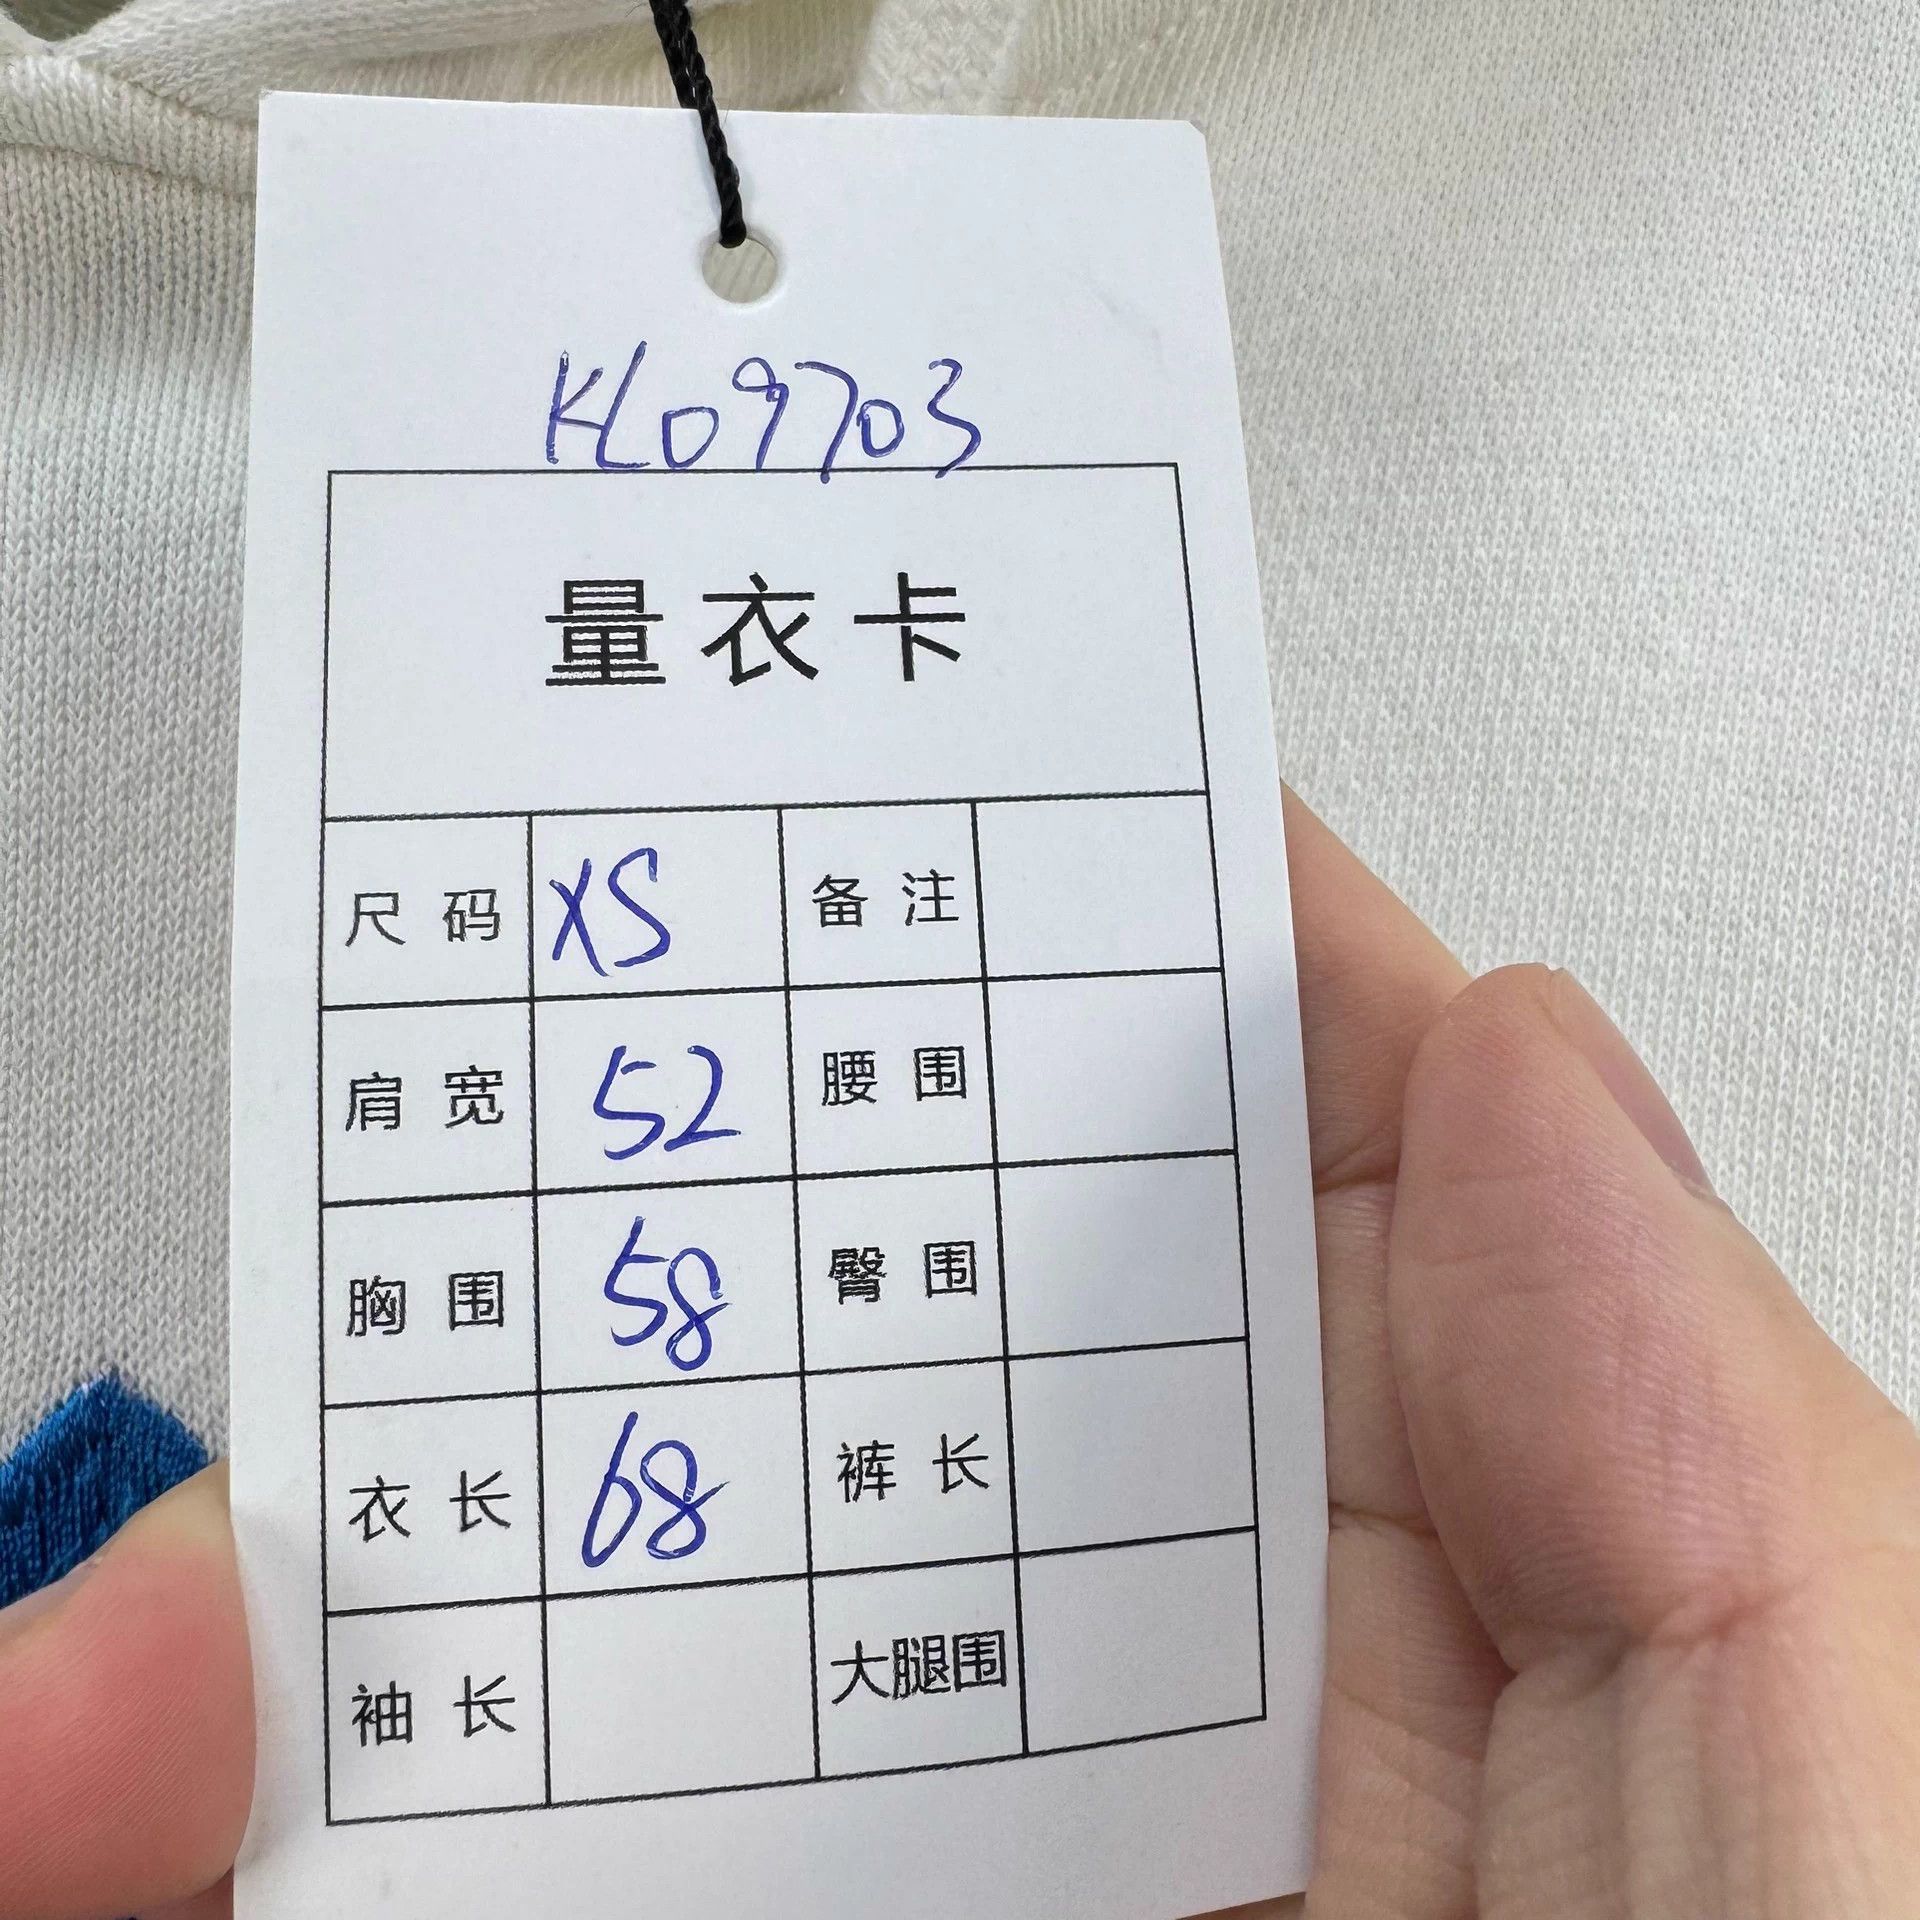 KL09703
量衣卡
尺码 XS 备注
肩宽 52 腰围
胸围 58 臀围
衣长 68 裤长
袖长 大腿围